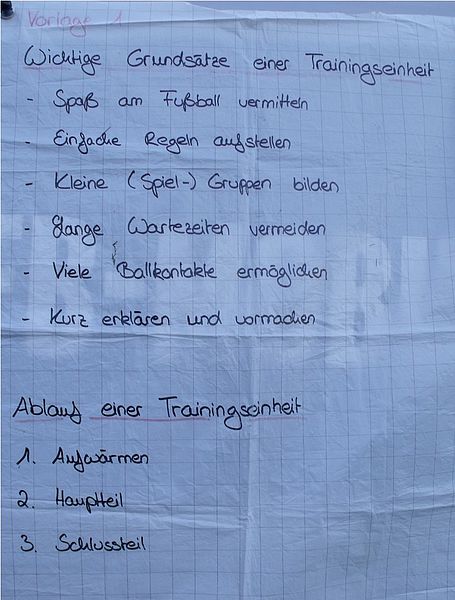 Vorlage 1
Wichtige Grundsätze einer Trainingseinheit
- Spaß am Fußball vermitteln
- Einfache Regeln aufstellen
- Kleine (Spiel-) Gruppen bilden
- Lange Wartezeiten vermeiden
- Viele Ballkontakte ermöglichen
- Kurz erklären und vormachen
Ablauf einer Trainingseinheit
1. Aufwärmen
2. Hauptteil
3. Schlussteil